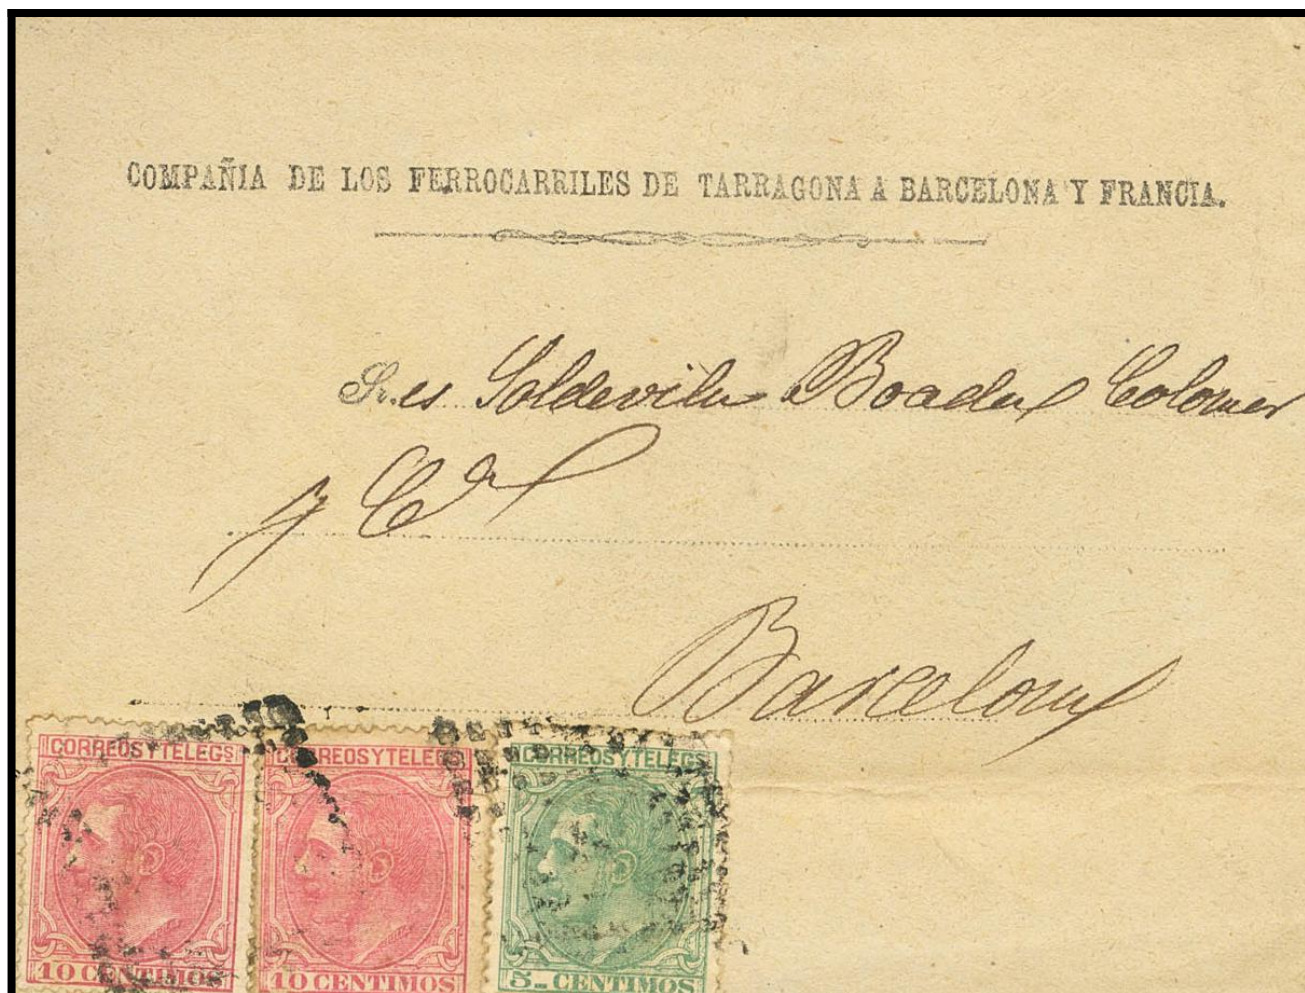 COMPAÑIA DE LOS FERROCARRILES DE TARRAGONA A BARCELONA Y FRANCIA.
Sr.es Soldevila Boada Colomer
y Cª
Barcelona
CORREOS Y TELEGS CORREOS Y TELEGS CORREOS Y TELEGS
10 CENTIMOS 10 CENTIMOS 5 CENTIMOS